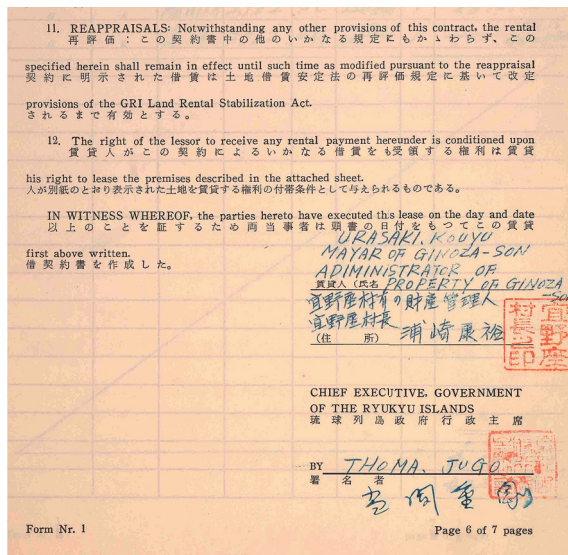 11. REAPPRAISALS: Notwithstanding any other provisions of this contract, the rental
再評価：この契約書中の他のいかなる規定にもかゝわらず、この
specified herein shall remain in effect until such time as modified pursuant to the reappraisal
契約に明示された借賃は土地借賃安定法の再評価規定に基いて改定
provisions of the GRI Land Rental Stabilization Act.
されるまで有効とする。
12. The right of the lessor to receive any rental payment hereunder is conditioned upon
賃貸人がこの契約によるいかなる借賃をも受領する権利は賃貸
his right to lease the premises described in the attached sheet.
人が別紙のとおり表示された土地を賃貸する権利の付帯条件として与えられるものである。
IN WITNESS WHEREOF, the parties hereto have executed this lease on the day and date
以上のことを証するため両当事者は頭書の日付をもつてこの賃貸
first above written.
借契約書を作成した。
URASAKI, KOUYU
MAYAR OF GINOZA-SON
ADIMINISTRATOR OF
賃貸人（氏名 PROPERTY OF GINOZA
-SON
宜野座村有の財産管理人
宜野座村長
（住 所） 浦崎康裕
宜野座
村長之印
CHIEF EXECUTIVE, GOVERNMENT
OF THE RYUKYU ISLANDS
琉球列島政府行政主席
BY THOMA, JUGO
署名者
当間重剛
Form Nr. 1
Page 6 of 7 pages